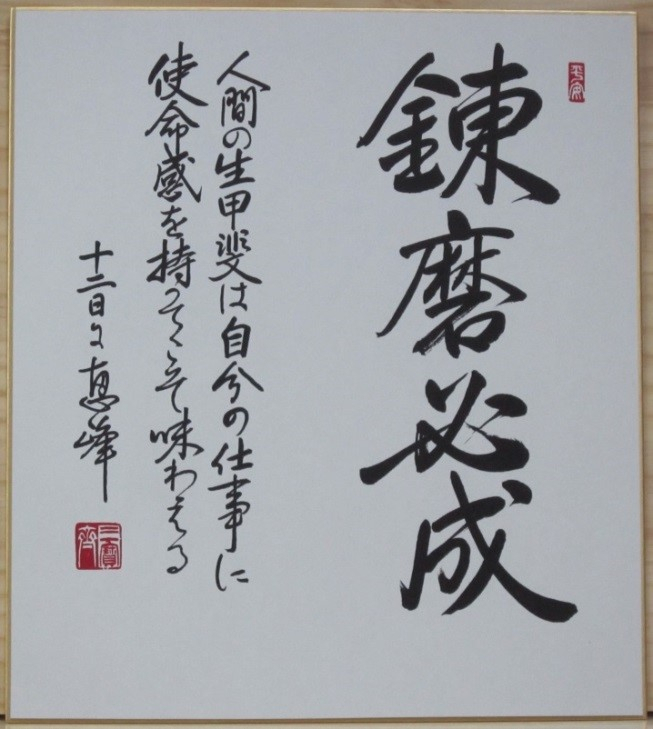 平安
錬磨必成
人間の生甲斐は自分の仕事に
使命感を持ってこそ味わえる
恵峰